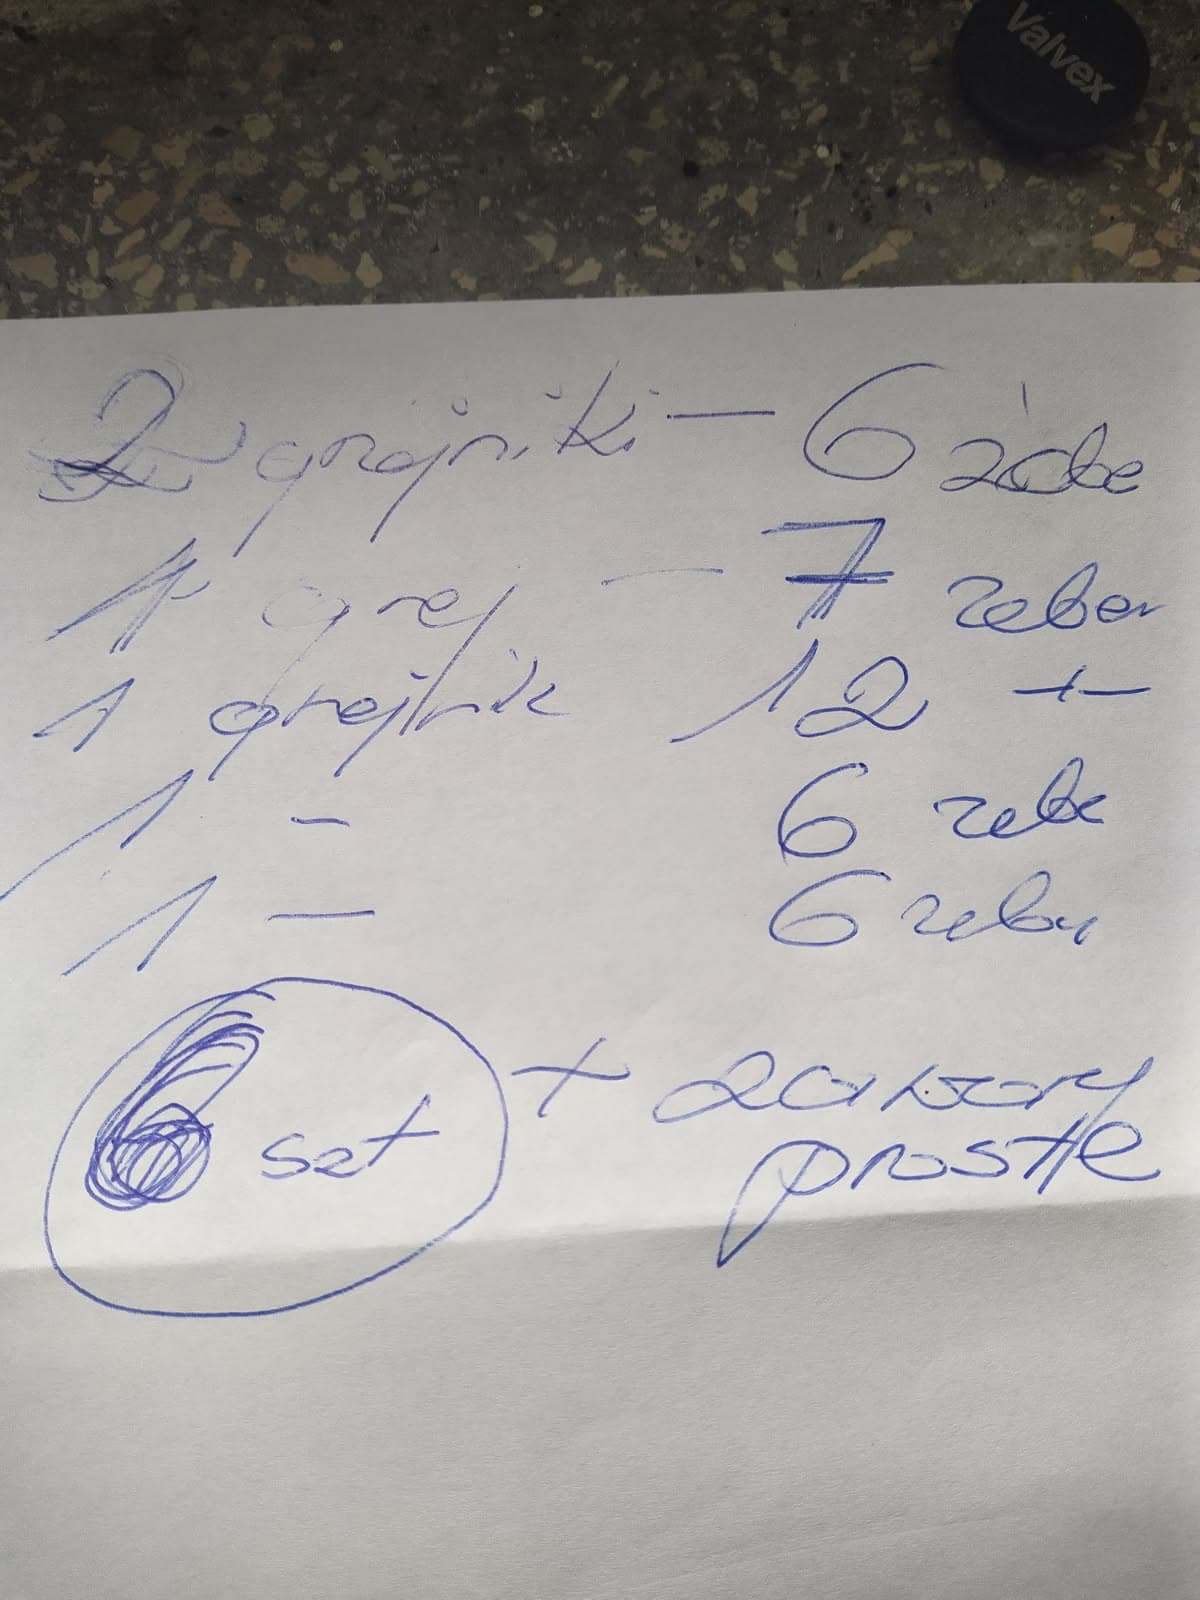 Valvex
2 grejniki - 6 żebe
1 grej - 7 zeber
1 grejnik 12 +-
1 - 6 zebe
1 - 6 zeby
6 szt + zawory
proste